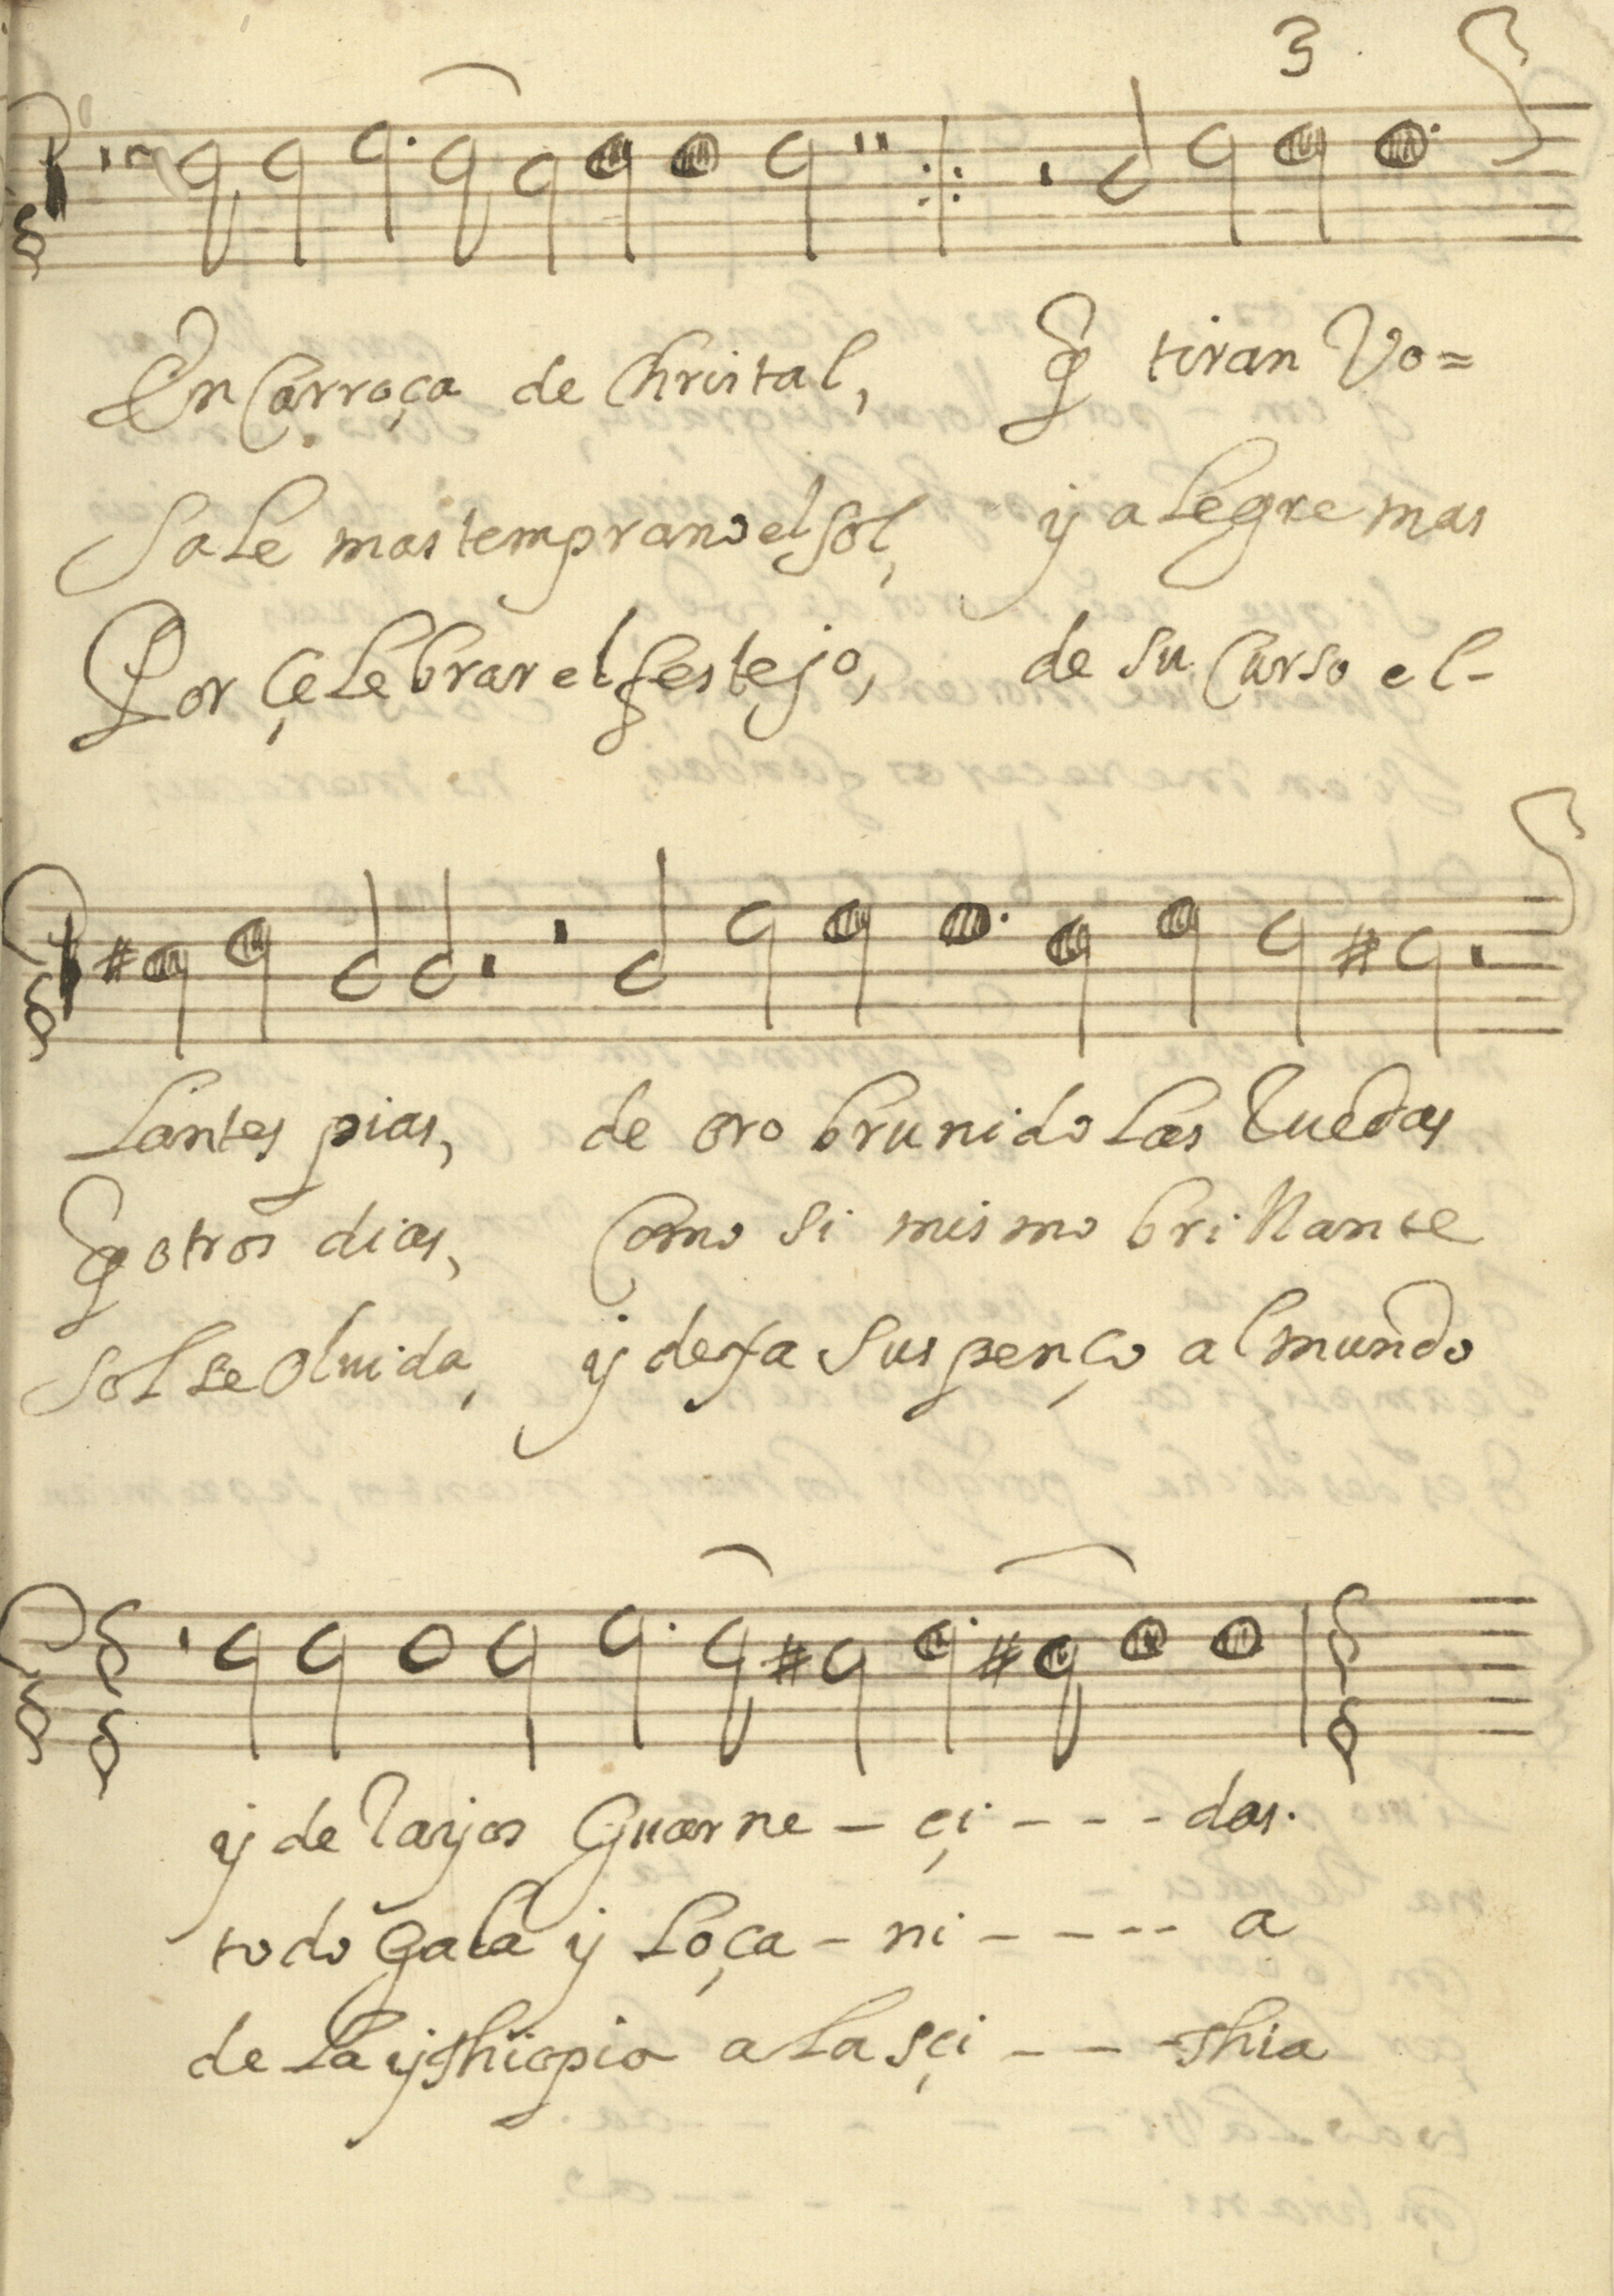 3
En Carroça de Christal, q̃ tiran Vo=
Sale mas temprano el sol, y alegre mas
Por çelebrar el festejo, de su Curso el-
Lantes pias, de oro brunido Las Ruedas
q̃ otros dias, Como si mismo brillante
sol se olvida, y dexa suspenço al mundo
y de Rayos Guarne - çi - - - das.
todo gala y Loça - ni - - - - a
de La ythiopia a La sçi - - - thia